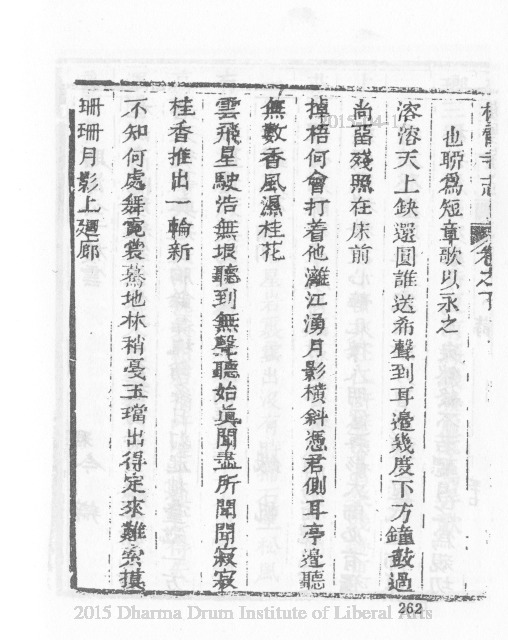 棲霞寺志 卷之下
也聊為短章歌以永之
溶溶天上缺還圓誰送希聲到耳邊幾度下方鐘鼓過
尚留殘照在床前
掉梧何曾打着他灕江湧月影橫斜憑君側耳亭邊聽
無數香風濕桂花
雲飛星駛浩無垠聽到無聲聽始真聞盡所聞聞寂寂
桂香推出一輪新
不知何處舞霓裳驀地林稍戞玉璫出得定來難索摸
珊珊月影上廻廊
262
2015 Dharma Drum Institute of Liberal Arts